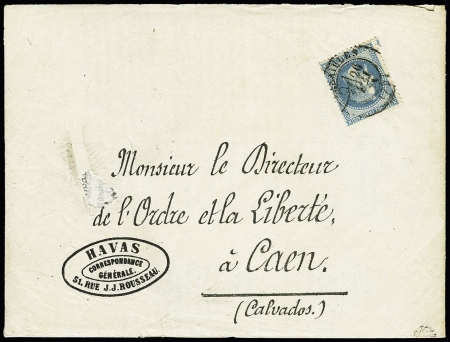 Monsieur le Directeur
de l'Ordre et la Liberté,
à Caen.
(Calvados.)
HAVAS
CORRESPONDANCE
GÉNÉRALE.
51, RUE J.J. ROUSSEAU.